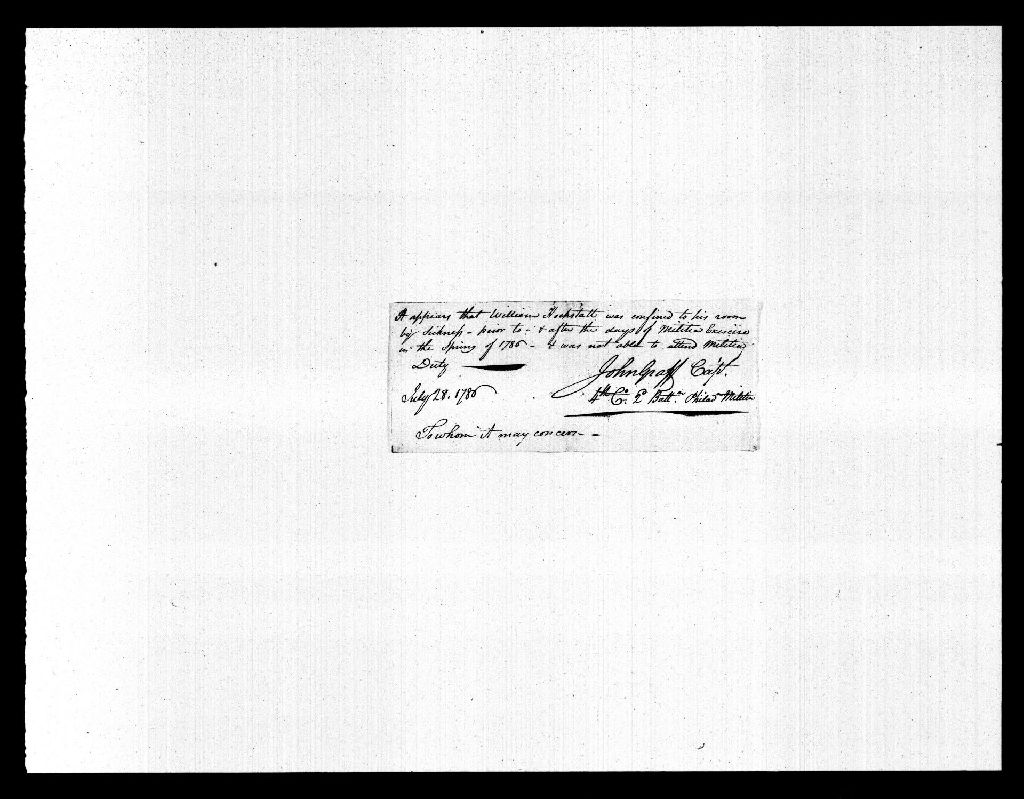 It appears that William Hookstatt was confined to his room
by Sickness - prior to - & after the days of Militia Exercise
in the Spring of 1786 - & was not able to attend Militia
Duty
John Graff Capt.
July 28. 1786
4th Co. 2d Batt.n Philad Militia
To whom it may concern - -